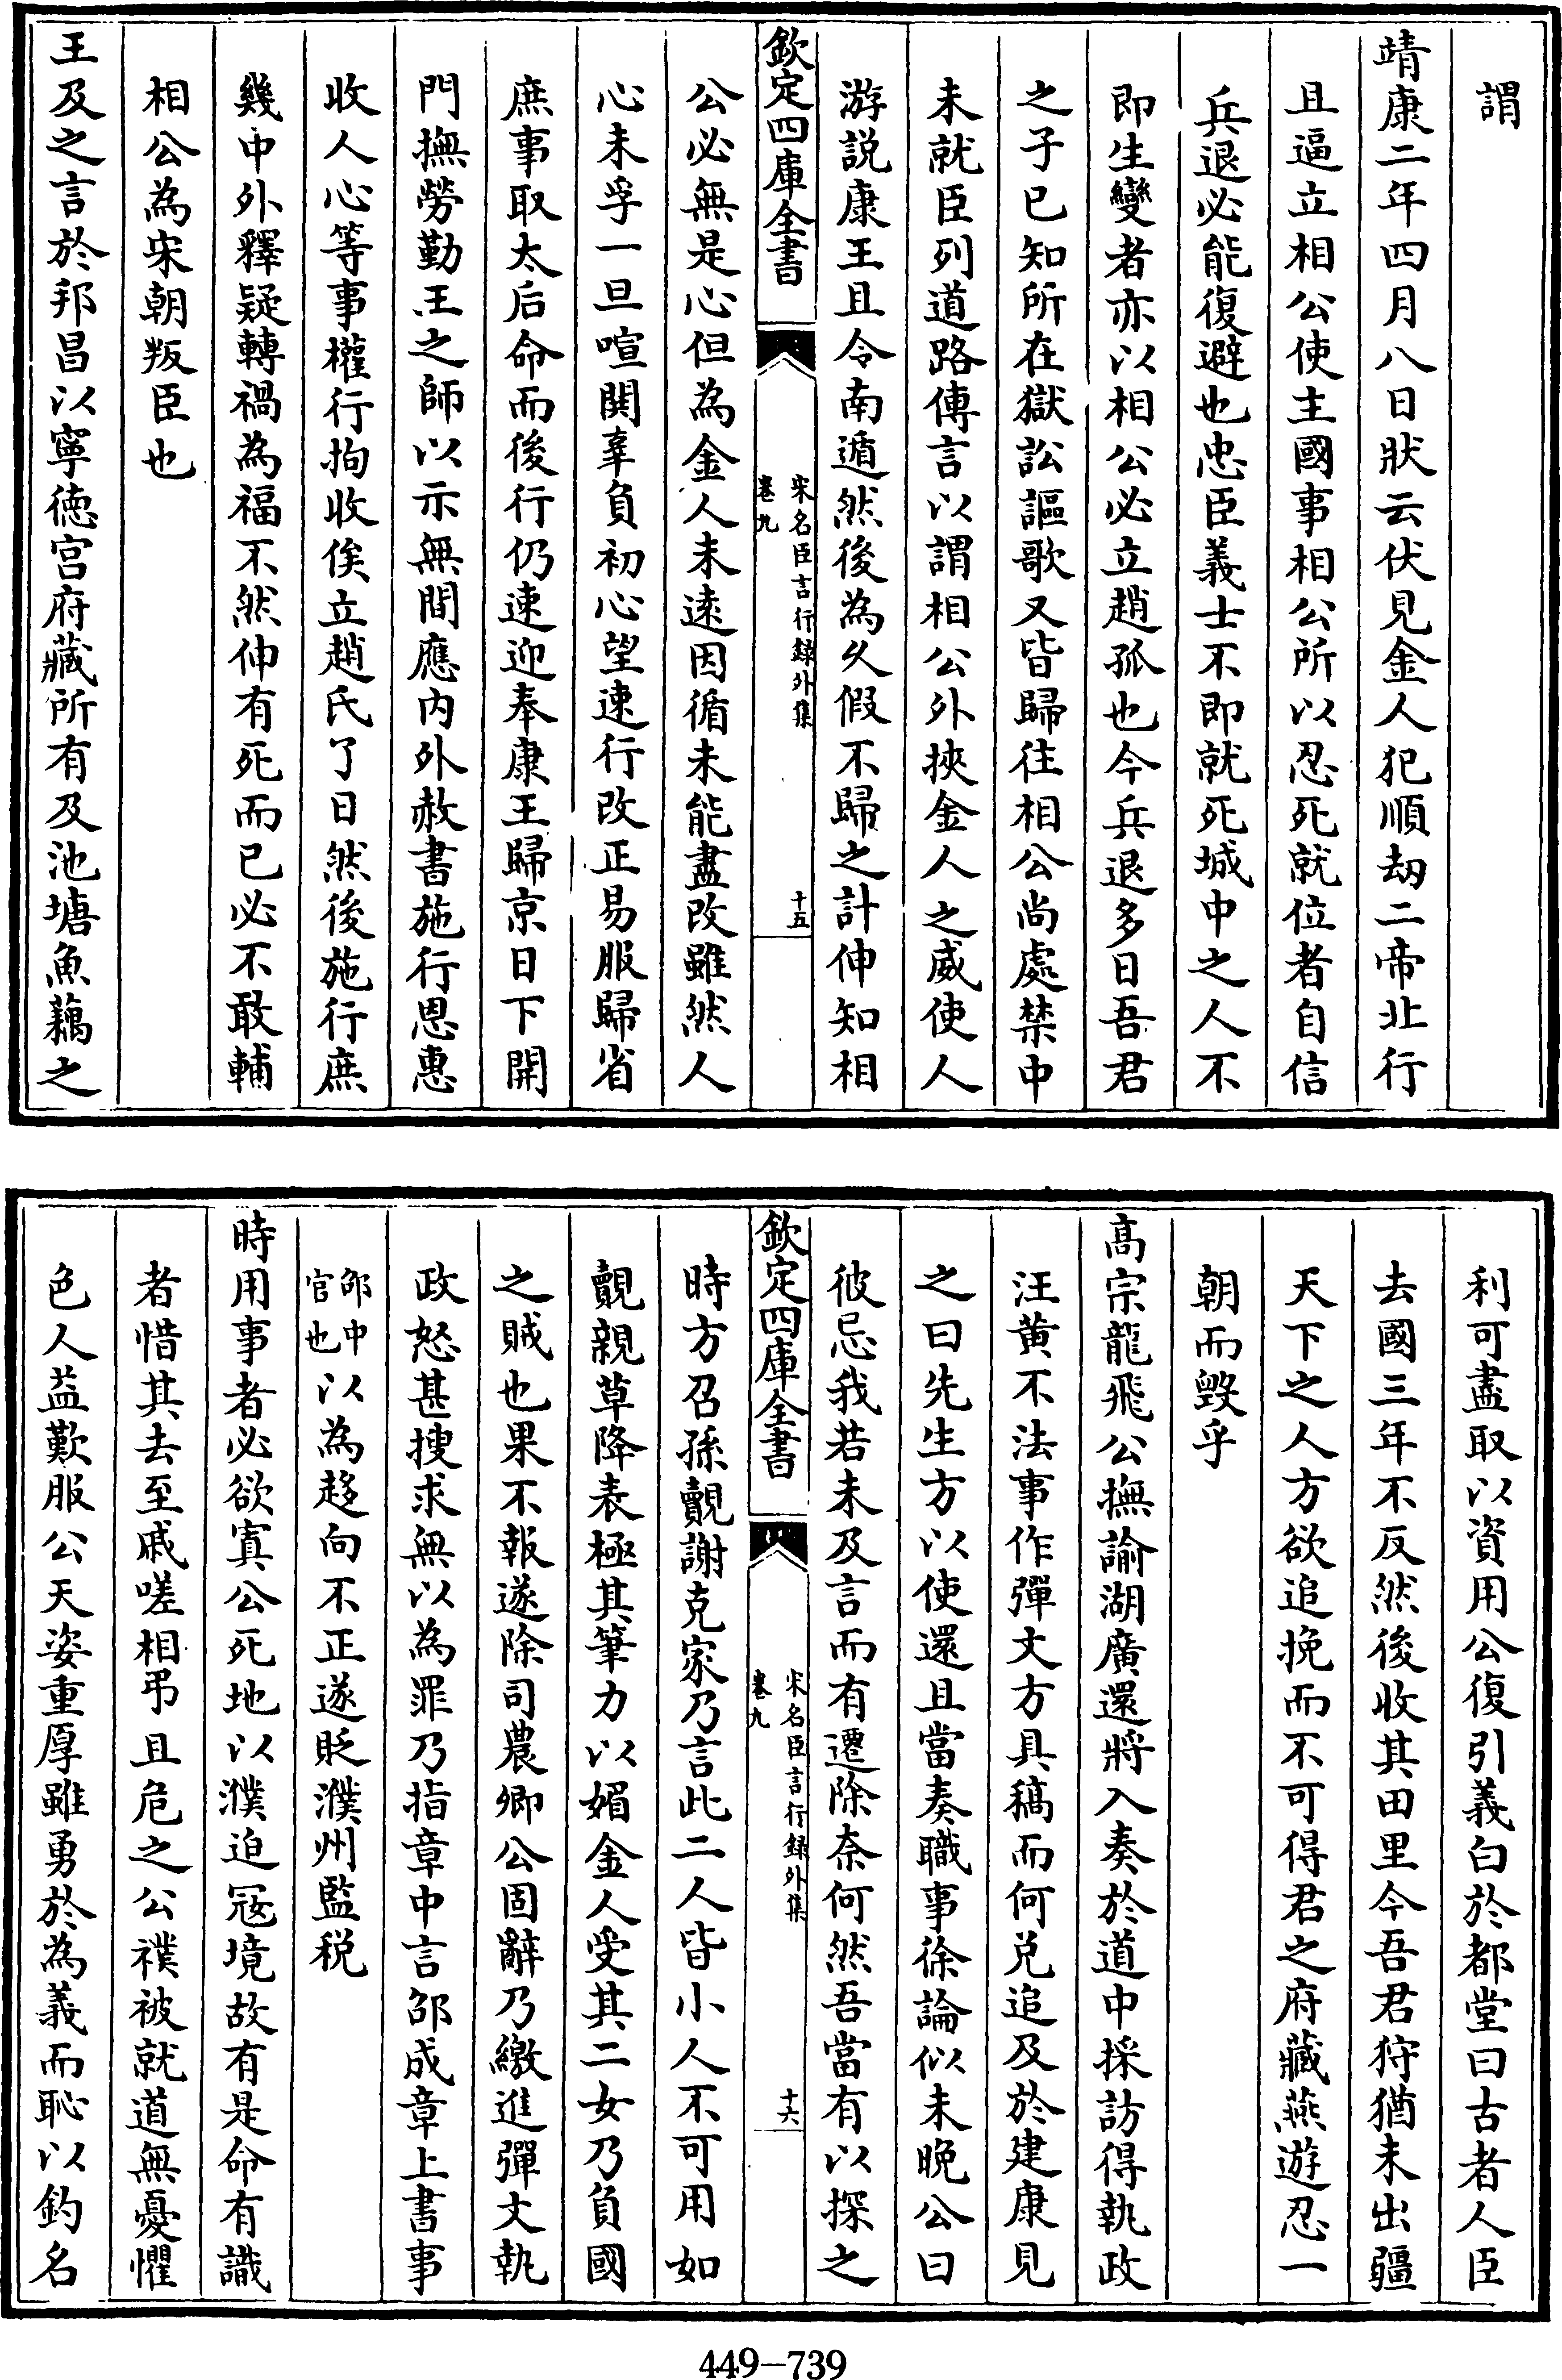 謂
靖康二年四月八日狀云伏見金人犯順刼二帝北行
且逼立相公使主國事相公所以忍死就位者自信
兵退必能復避也忠臣義士不即就死城中之人不
即生變者亦以相公必立趙孤也今兵退多日吾君
之子已知所在獄訟謳歌又皆歸往相公尚處禁中
未就臣列道路傳言以謂相公外挾金人之威使人
游説康王且令南遁然後為久假不歸之計伸知相
欽定四庫全書
宋名臣言行録外集
卷九
十五
公必無是心但為金人未逺因循未能盡改雖然人
心未孚一旦喧閧辜負初心望速行改正易服歸省
庶事取太后命而後行仍速迎奉康王歸京日下開
門撫勞勤王之師以示無間應内外赦書施行恩惠
收人心等事權行拘收俟立趙氏了日然後施行庶
幾中外釋疑轉禍為福不然伸有死而已必不敢輔
相公為宋朝叛臣也
王及之言於邦昌以寧徳宫府藏所有及池塘魚藕之
利可盡取以資用公復引義白於都堂曰古者人臣
去國三年不反然後收其田里今吾君狩猶未出疆
天下之人方欲追挽而不可得君之府藏燕遊忍一
朝而毁乎
髙宗龍飛公撫諭湖廣還將入奏於道中採訪得執政
汪黄不法事作彈文方具稿而何兑追及於建康見
之曰先生方以使還且當奏職事徐論似未晚公曰
彼忌我若未及言而有遷除奈何然吾當有以探之
欽定四庫全書
宋名臣言行録外集
卷九
十六
時方召孫覿謝克家乃言此二人皆小人不可用如
覿親草降表極其筆力以媚金人受其二女乃負國
之賊也果不報遂除司農卿公固辭乃繳進彈文執
政怒甚搜求無以為罪乃指章中言邵成章上書事
邵中
官也
以為趍向不正遂貶濮州監税
時用事者必欲寘公死地以濮迫冦境故有是命有識
者惜其去至戚嗟相弔且危之公襆被就道無憂懼
色人益歎服公天姿重厚雖勇於為義而恥以釣名
449-739